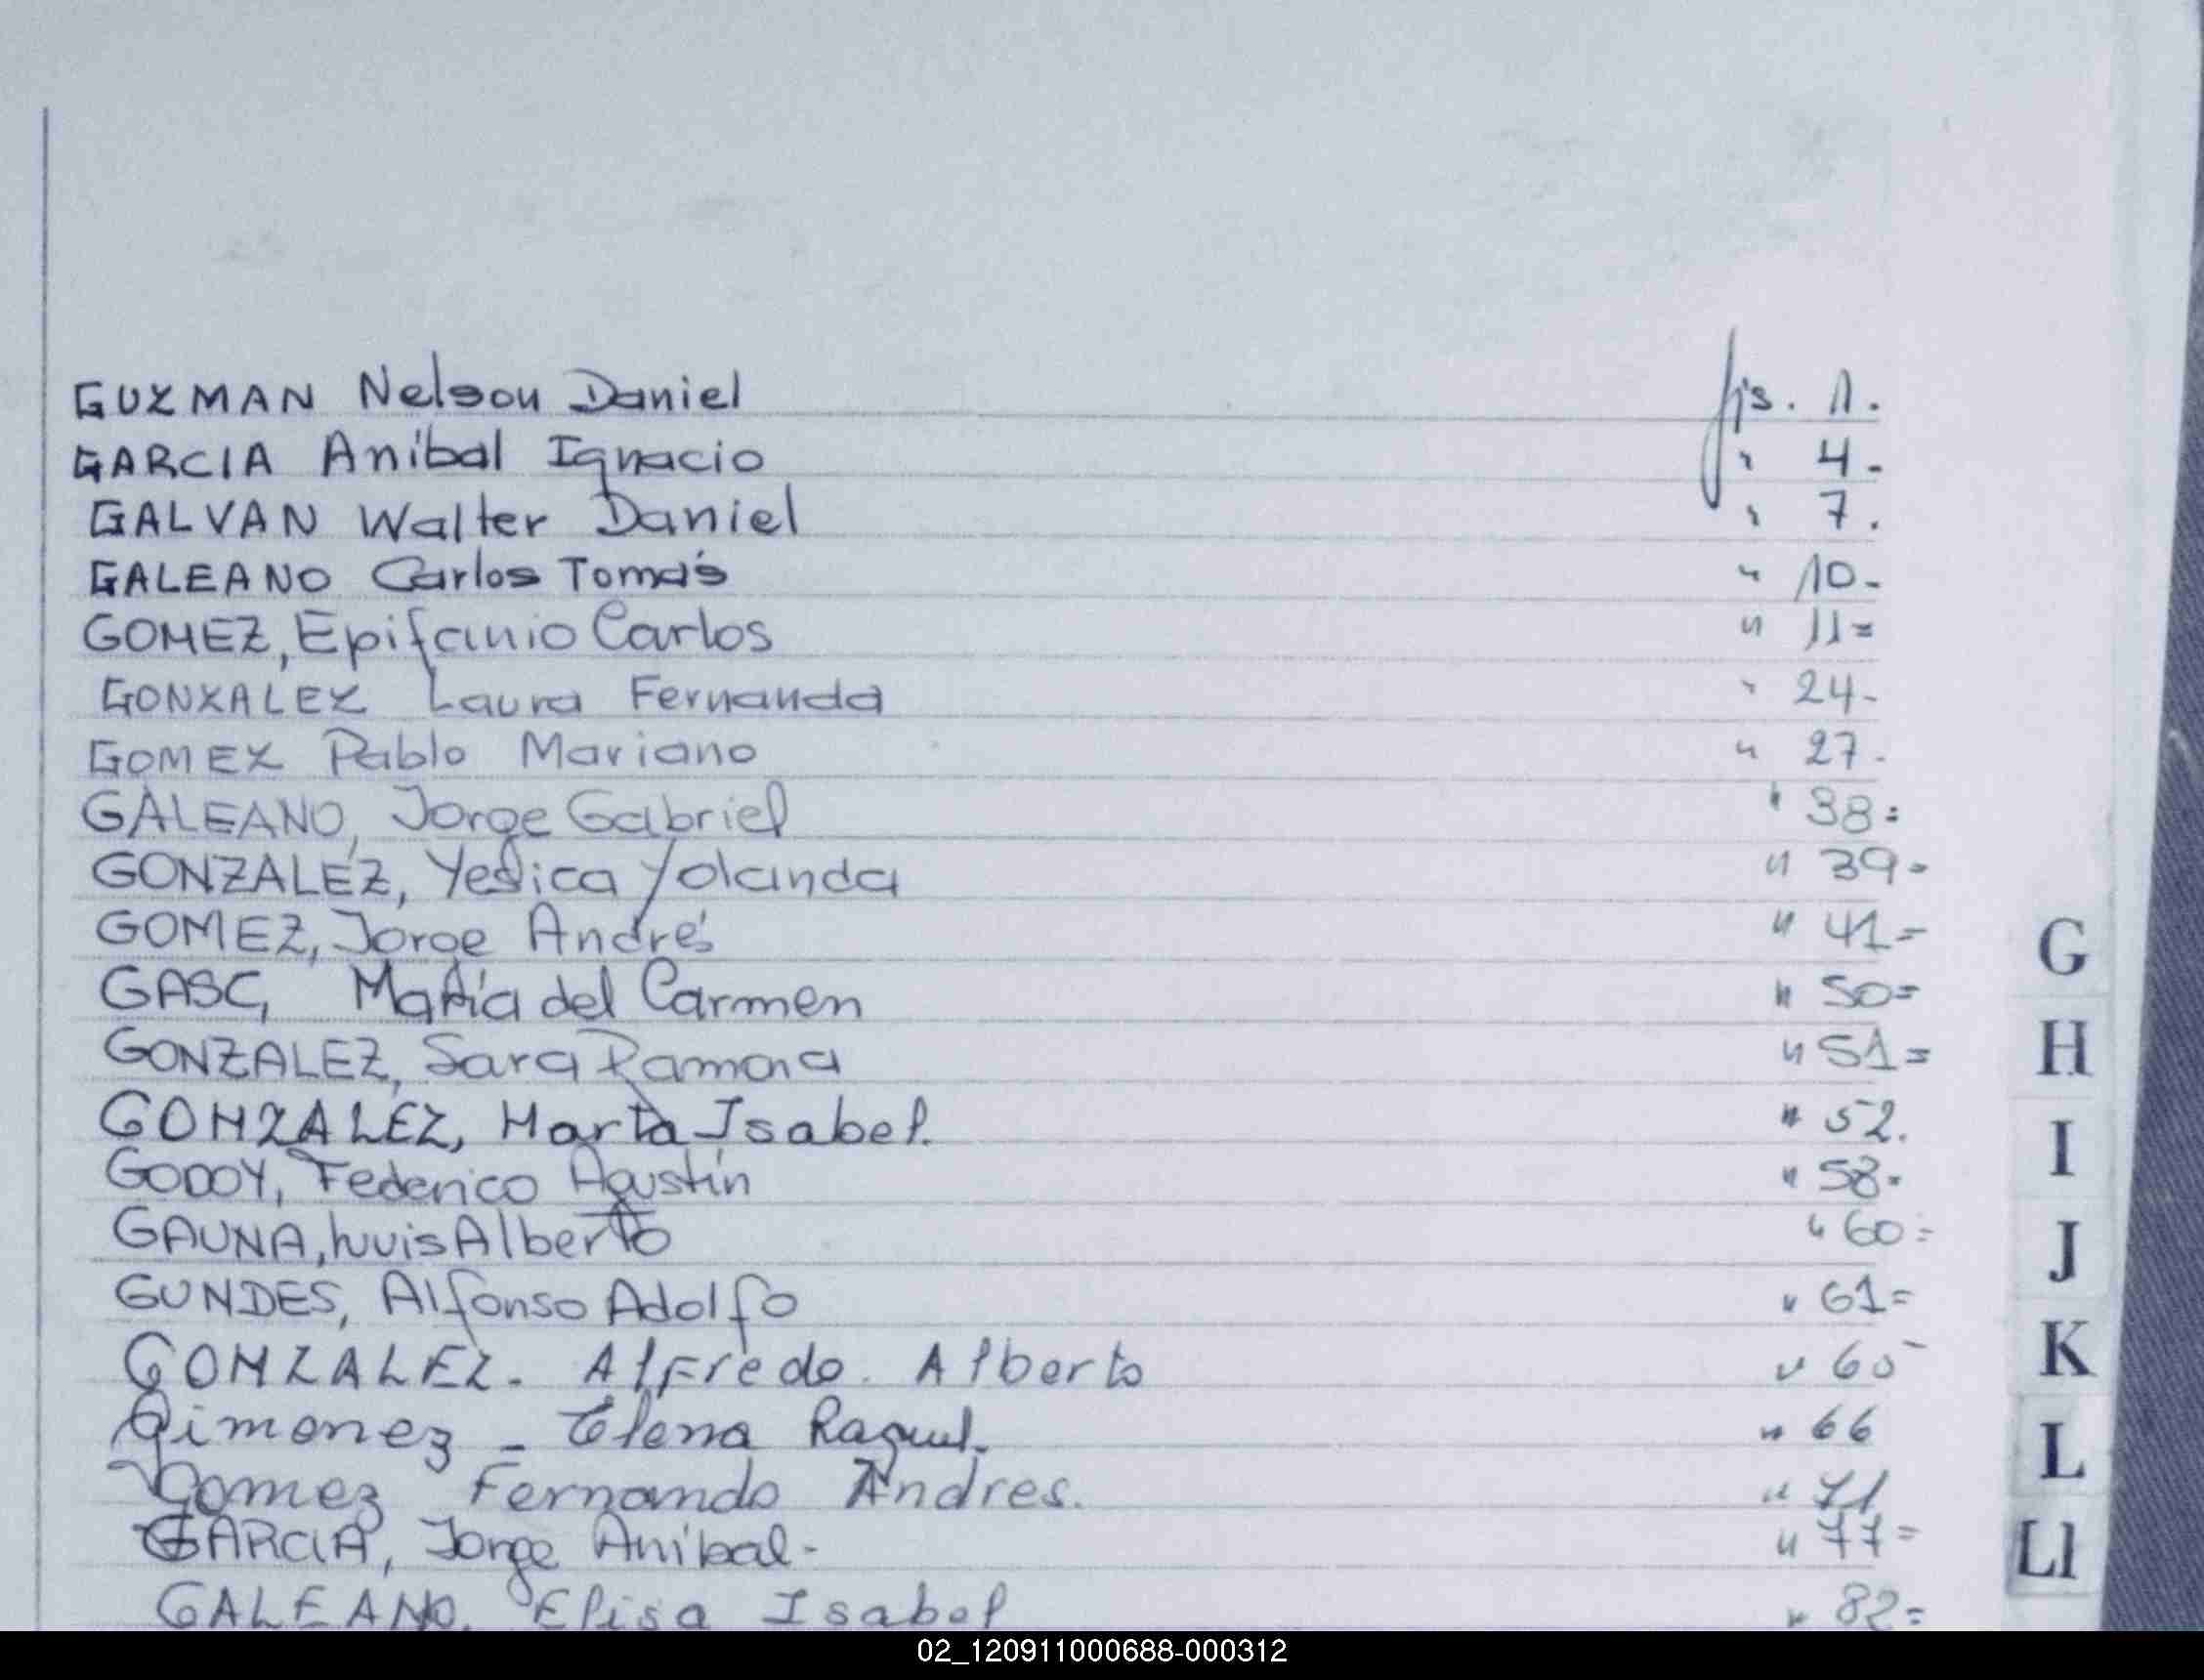 GUZMAN Nelson Daniel fjs. 1.
GARCIA Aníbal Ignacio " 4-
GALVAN Walter Daniel " 7.
GALEANO Carlos Tomás " 10-
GOMEZ, Epifanio Carlos " 11=
GONZALEZ Laura Fernanda " 24-
GOMEZ Pablo Mariano " 27.
GALEANO, Jorge Gabriel " 38=
GONZALEZ, Yesica Yolanda " 39=
GOMEZ, Jorge Andrés " 41=
GASC, María del Carmen " 50=
GONZALEZ, Sara Ramona " 51=
GONZALEZ, Marta Isabel. " 52.
GODOY, Federico Agustín " 58=
GAUNA, Luis Alberto " 60=
GUNDES, Alfonso Adolfo " 61=
GONZALEZ. Alfredo. Alberto "
Gimenez - Elena Raquel. " 66
Gomez Fernando Andres. " 71
GARCIA, Jorge Anibal- " 77=
GALEANO, Elisa Isabel " 82=
G
H
I
J
K
L
Ll
02_120911000688-000312